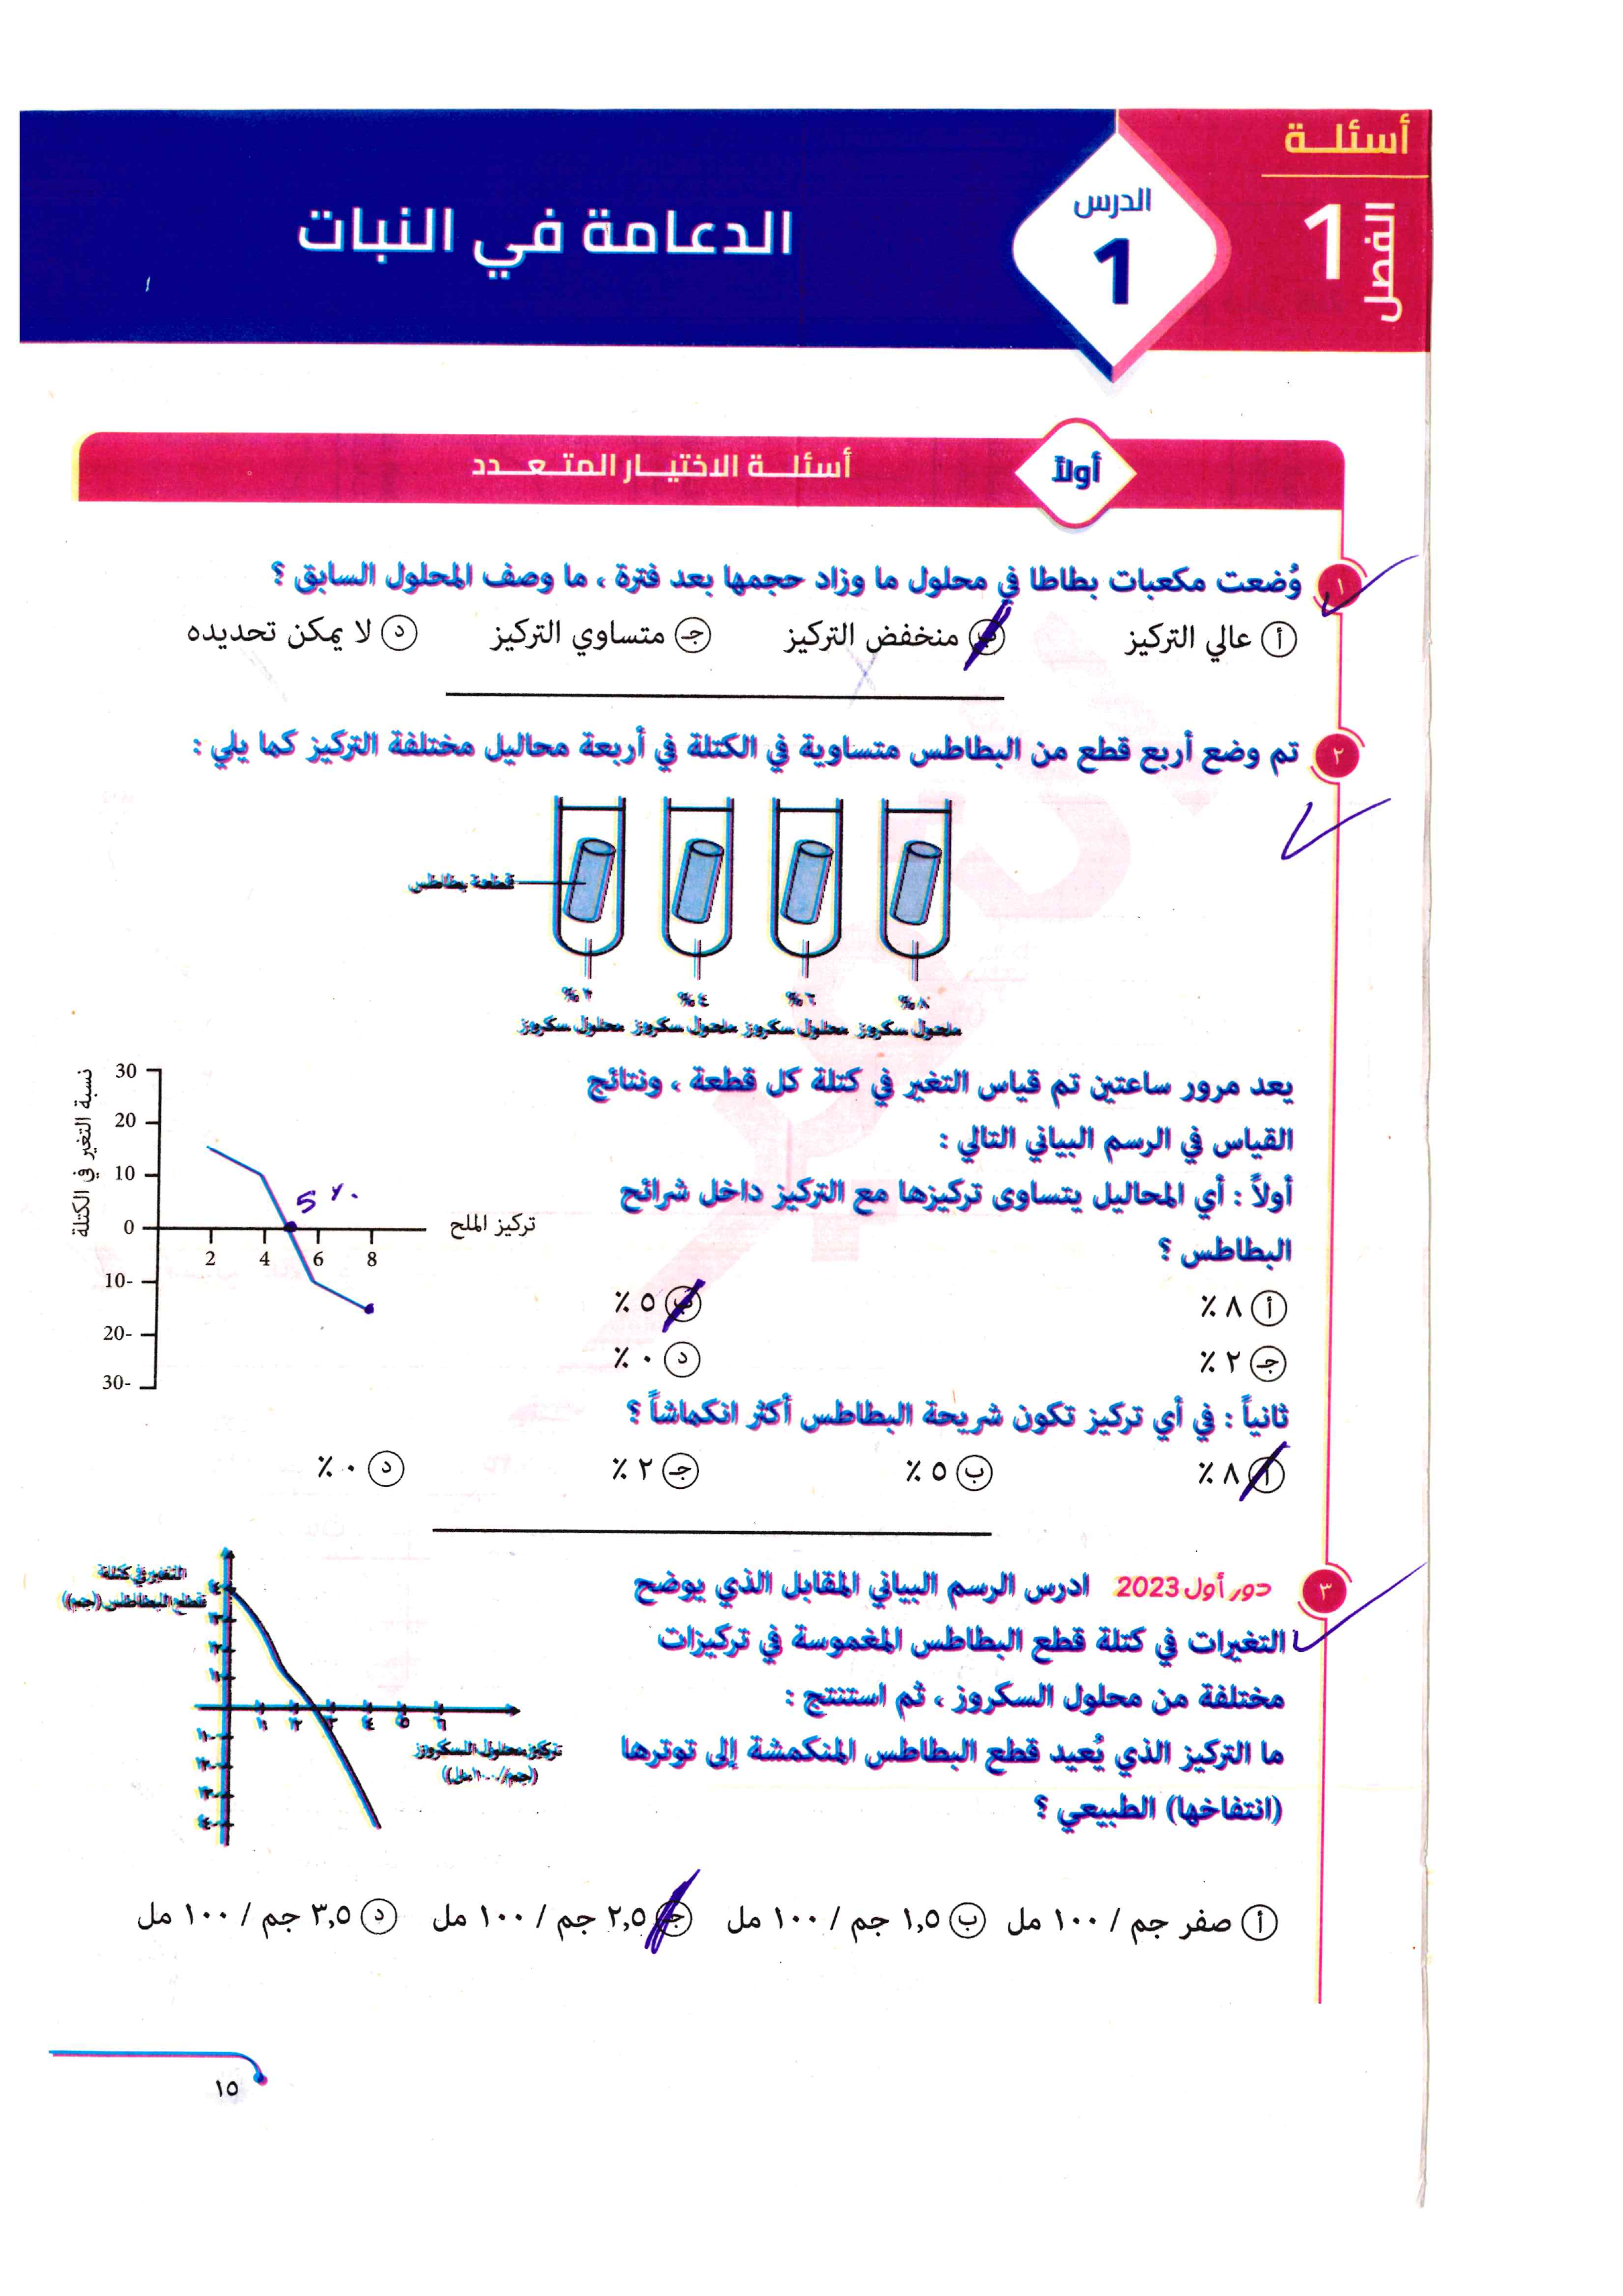 أسئلة
الفصل 1
الدرس 1
الدعامة في النبات
أولاً
أسئلة الاختيار المتعدد
١ وُضعت مكعبات بطاطا في محلول ما وزاد حجمها بعد فترة ، ما وصف المحلول السابق ؟
أ عالي التركيز ب منخفض التركيز جـ متساوي التركيز د لا يمكن تحديده
٢ تم وضع أربع قطع من البطاطس متساوية في الكتلة في أربعة محاليل مختلفة التركيز كما يلي :
قطعة بطاطس
٨% ٦% ٤% ٢%
محلول سكروز محلول سكروز محلول سكروز محلول سكروز
يعد مرور ساعتين تم قياس التغير في كتلة كل قطعة ، ونتائج
القياس في الرسم البياني التالي :
نسبة التغير في الكتلة
30
20
10
0
10-
20-
30-
2 4 6 8
تركيز الملح
5 %
أولاً : أي المحاليل يتساوى تركيزها مع التركيز داخل شرائح
البطاطس ؟
أ ٨ ٪ ب ٥ ٪
جـ ٢ ٪ د ٠ ٪
ثانياً : في أي تركيز تكون شريحة البطاطس أكثر انكماشاً ؟
أ ٨ ٪ ب ٥ ٪ جـ ٢ ٪ د ٠ ٪
٣ دور أول 2023 ادرس الرسم البياني المقابل الذي يوضح
التغيرات في كتلة قطع البطاطس المغموسة في تركيزات
مختلفة من محلول السكروز ، ثم استنتج :
ما التركيز الذي يُعيد قطع البطاطس المنكمشة إلى توترها
(انتفاخها) الطبيعي ؟
التغير في كتلة
قطع البطاطس (جم)
١ ٢ ٣ ٤ ٥ ٦
تركيز محلول السكروز
(جم/١٠٠مل)
أ صفر جم / ١٠٠ مل ب ١,٥ جم / ١٠٠ مل جـ ٢,٥ جم / ١٠٠ مل د ٣,٥ جم / ١٠٠ مل
١٥